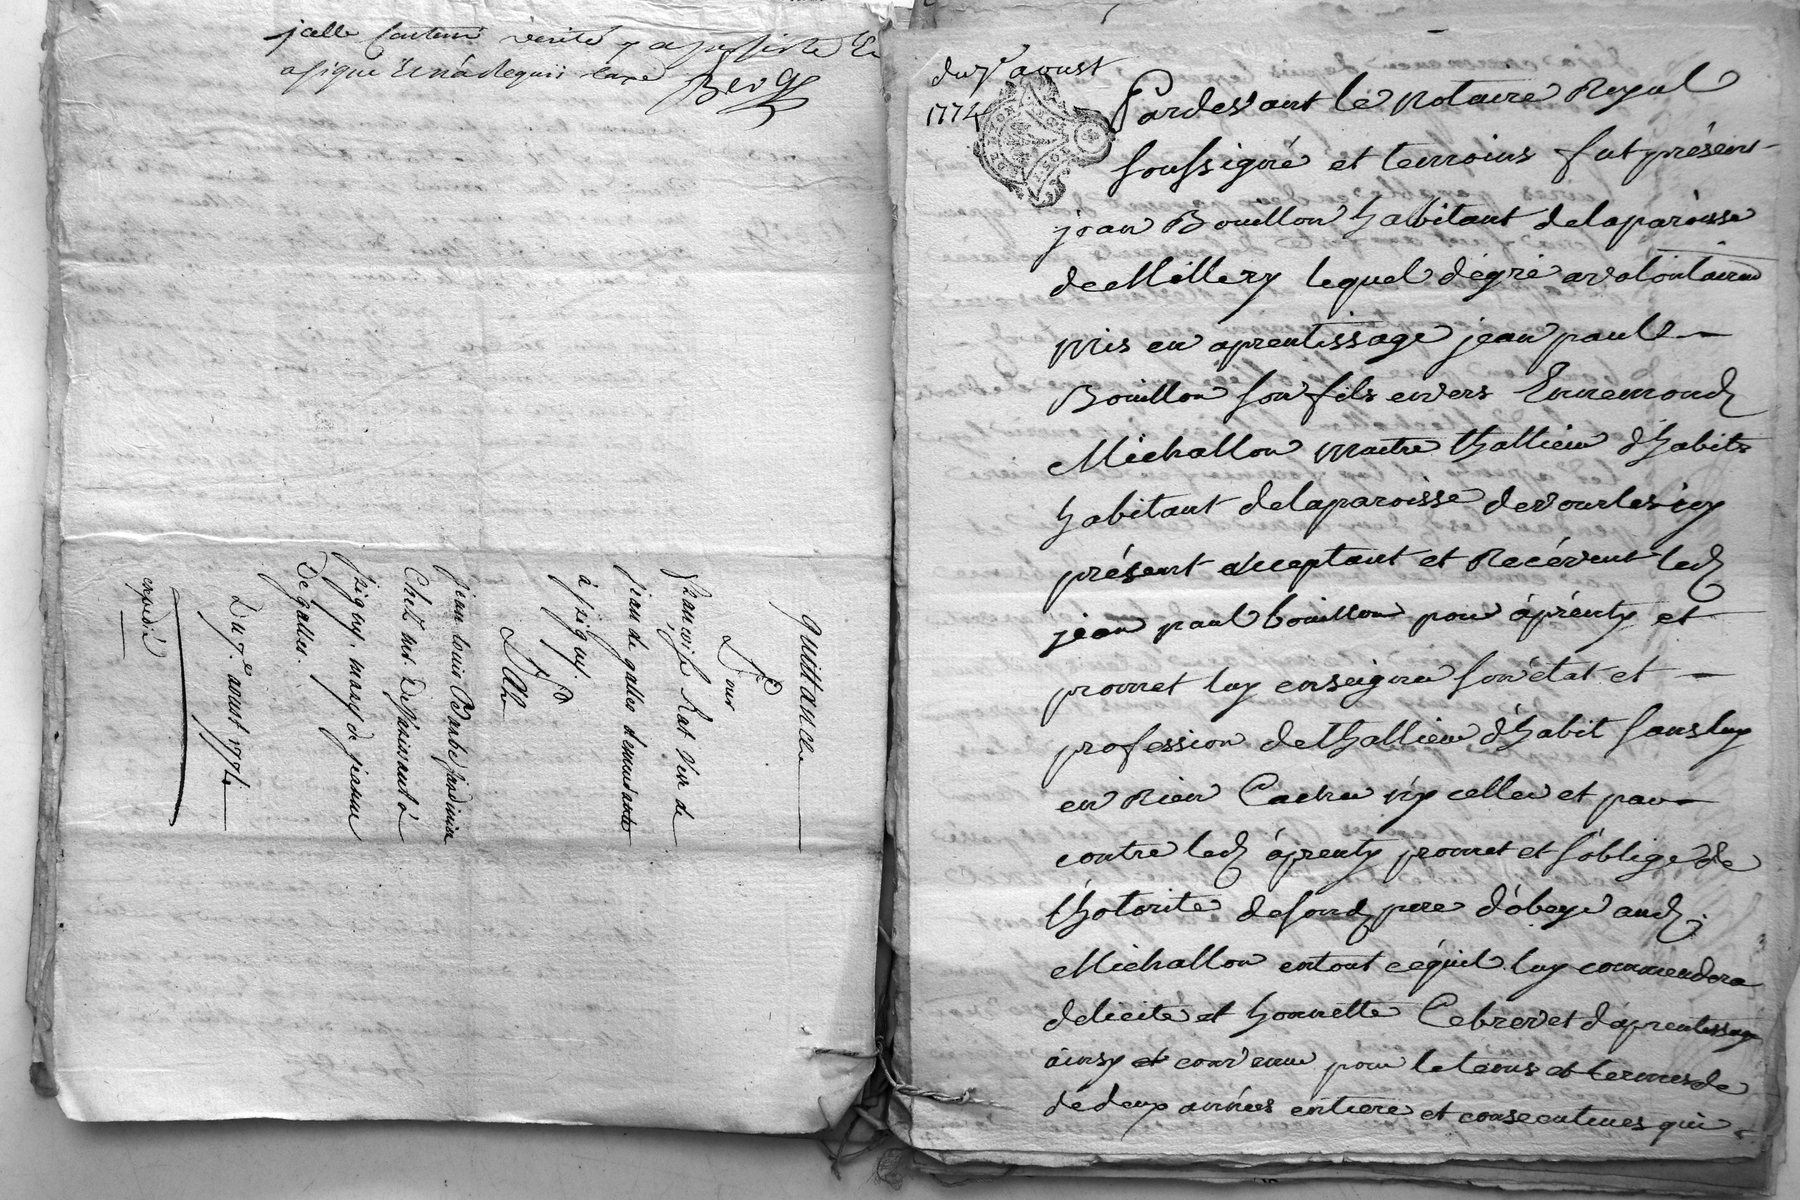 jcelle Contenir vérité y a persisté
Berg
quittance
Pour
françoise Rat veuve de
jean de galles demeurante
à jrigny.
Sr
jean louis Barbe jardinier
Chez mr. Despinisant à
jrigny, mary de jeanne
De galles.
Du 7e. avust 1774
expédié
du 7e avust
1774
Pardevant le notaire Royal
soussigné et temoins fut présent
jean Bouillon habitant delaparoisse
de Millery lequel dégré avolontairem
mis en aprentissage jean paul
Bouillon son fils envers Ennemond
Michallon maitre thallieur d'habits
habitant delaparoisse devourles icy
présent acceptant et Recévent led
jean paul bouillon pour áprénty et
promet luy enseigner son état et
profession dethallieur d'habit sansluy
en Rien Cacher ny celler et par
contre led áprenty promet et s'oblige de
l'hotorite desond pere d'óbeyr aud
Michallon entout céquil luy commendera
delicite et honnette Cebrevet d'aprentissage
ainsy et convenu pour letems et termes de
de deux années entiere et consecutives qui